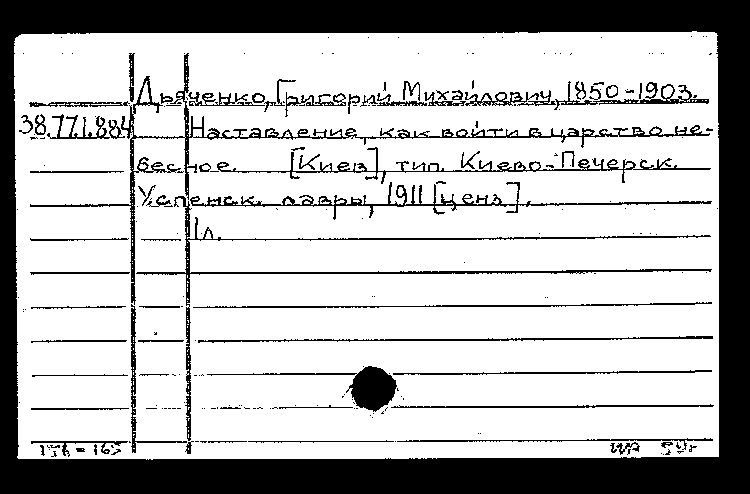 Дьяченко, Григорий Михайлович, 1850-1903.
38.771.884 Наставление, как войти в царство не-
бесное. [Киев], тип. Киево-Печерск.
Успенск. лавры, 1911 [ценз].
1л.